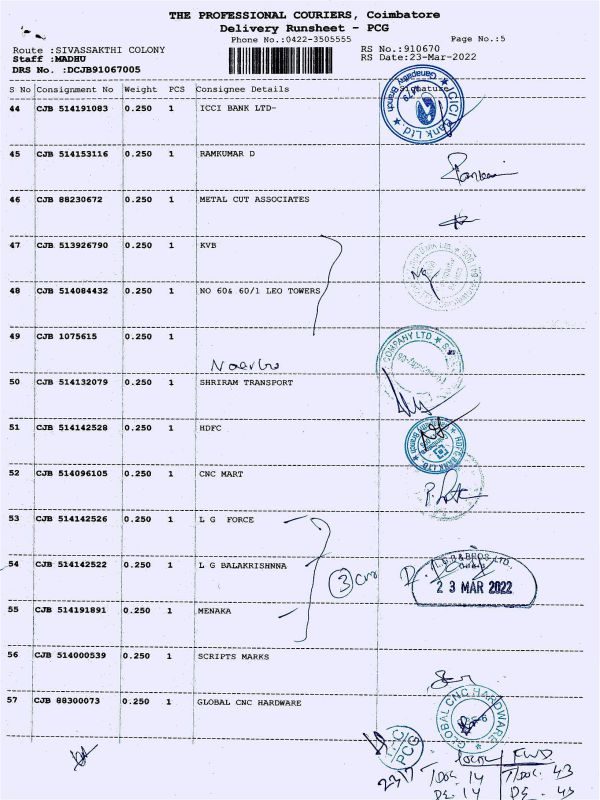 THE PROFESSIONAL COURIERS, Coimbatore
Delivery Runsheet - PCG
Phone No.:0422-3505555
Page No.:5
Route :SIVASSAKTHI COLONY
RS No.:910670
Staff :MADHU
RS Date:23-Mar-2022
DRS No. :DCJB91067005
S No Consignment No Weight PCS Consignee Details Signature
44 CJB 514191083 0.250 1 ICCI BANK LTD-
ICICI Bank Ltd. Ganapathy Branch
45 CJB 514153116 0.250 1 RAMKUMAR D
46 CJB 88230672 0.250 1 METAL CUT ASSOCIATES
47 CJB 513926790 0.250 1 KVB
48 CJB 514084432 0.250 1 NO 60& 60/1 LEO TOWERS
49 CJB 1075615 0.250 1
COMPANY LTD
50 CJB 514132079 0.250 1 SHRIRAM TRANSPORT
51 CJB 514142528 0.250 1 HDFC
HDFC BANK LTD.
52 CJB 514096105 0.250 1 CNC MART
53 CJB 514142526 0.250 1 L G FORCE
54 CJB 514142522 0.250 1 L G BALAKRISHNNA
3
L.G.B & BROS. LTD.
23 MAR 2022
55 CJB 514191891 0.250 1 MENAKA
56 CJB 514000539 0.250 1 SCRIPTS MARKS
57 CJB 88300073 0.250 1 GLOBAL CNC HARDWARE
GLOBAL CNC HARDWARE
CBE-6
PCG
FWD
14 43
14 43